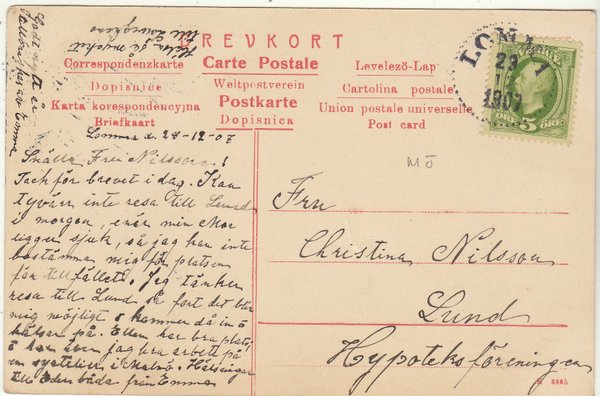 BREVKORT
Correspondenzkarte
Carte Postale
Levelező-Lap
Dopisnice
Weltpostverein
Cartolina postale
Karta korespondencyjna
Postkarte
Union postale universelle
Briefkaart
Dopisnica
Post card
LOMMA
28
1907
5 ÖRE
Lomma d. 28-12-07
Snälla Fru Nilsson!
Tack för brevet i dag. Kan
tyvärr inte resa till Lund
i morgon, enär min Mor
ligger sjuk, så jag kan inte
bestämma mig för platsen
för tillfället. Jag tänker
resa till Lund så fort det blir
mig möjligt o kommer då in o
hälsar på. Ellen har bra plats
o har även jag bra arbete på
en syatelier i Malmö. Hälsningar
till Eder båda från Emma
Godt nytt år
tillönskas av Emma
Hälsa så mycket
till
MÖ
Fru
Christina Nilsson
Lund
Hypoteksföreningen